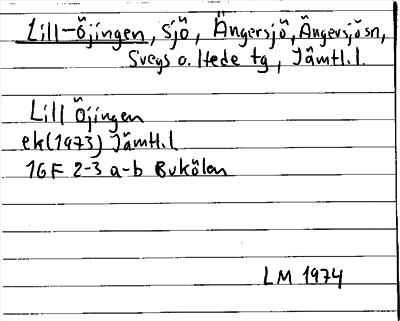 Lill-Öjingen, sjö, Ängersjö, Ängersjö sn,
Svegs o. Hede tg, Jämtl.l.
Lill Öjingen
ek(1973) Jämtl.l
16F 2-3 a-b Bukölen
LM 1974